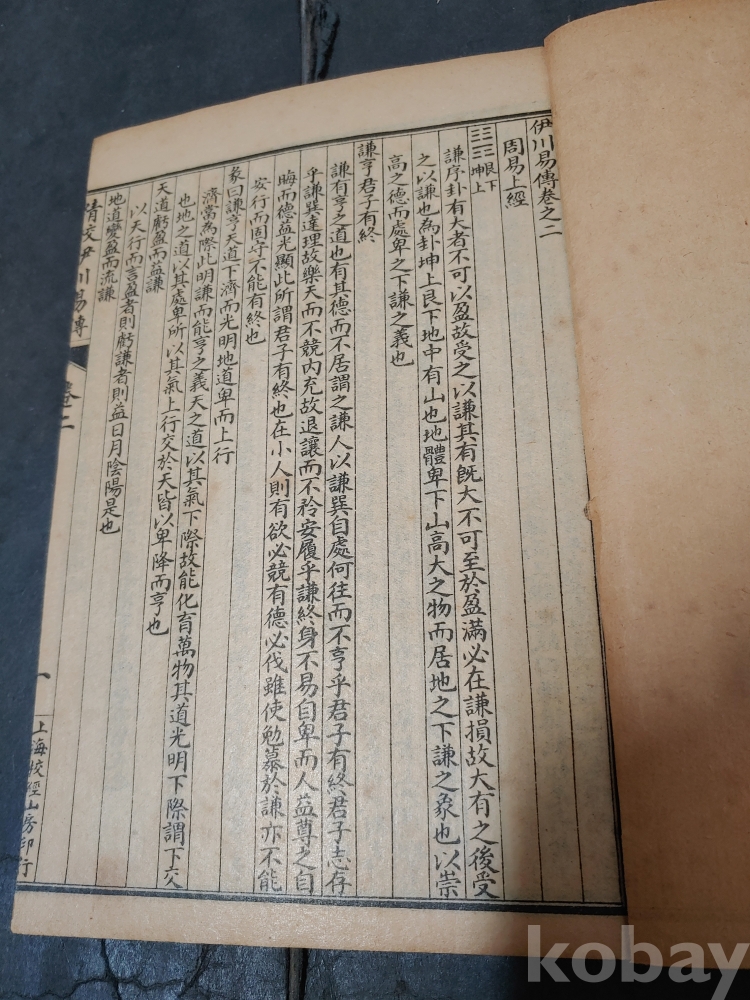 伊川易傳卷之二
周易上經
☷☶艮下坤上
謙序卦有大者不可以盈故受之以謙其有既大不可至於盈滿必在謙損故大有之後受
之以謙也為卦坤上艮下地中有山也地體卑下山高大之物而居地之下謙之象也以崇
高之德而處卑之下謙之義也
謙亨君子有終
謙有亨之道也有其德而不居謂之謙人以謙巽自處何往而不亨乎君子有終君子志存
乎謙巽達理故樂天而不競內充故退讓而不矜安履乎謙終身不易自卑而人益尊之自
晦而德益光顯此所謂君子有終也在小人則有欲必競有德必伐雖使勉慕於謙亦不能
安行而固守不能有終也
彖曰謙亨天道下濟而光明地道卑而上行
濟當為際此明謙而能亨之義天之道以其氣下際故能化育萬物其道光明下際謂下交
也地之道以其處卑所以其氣上行交於天皆以卑降而亨也
天道虧盈而益謙
以天行而言盈者則虧謙者則益日月陰陽是也
地道變盈而流謙
精校伊川易傳 卷二 一 上海校經山房印行
kobay